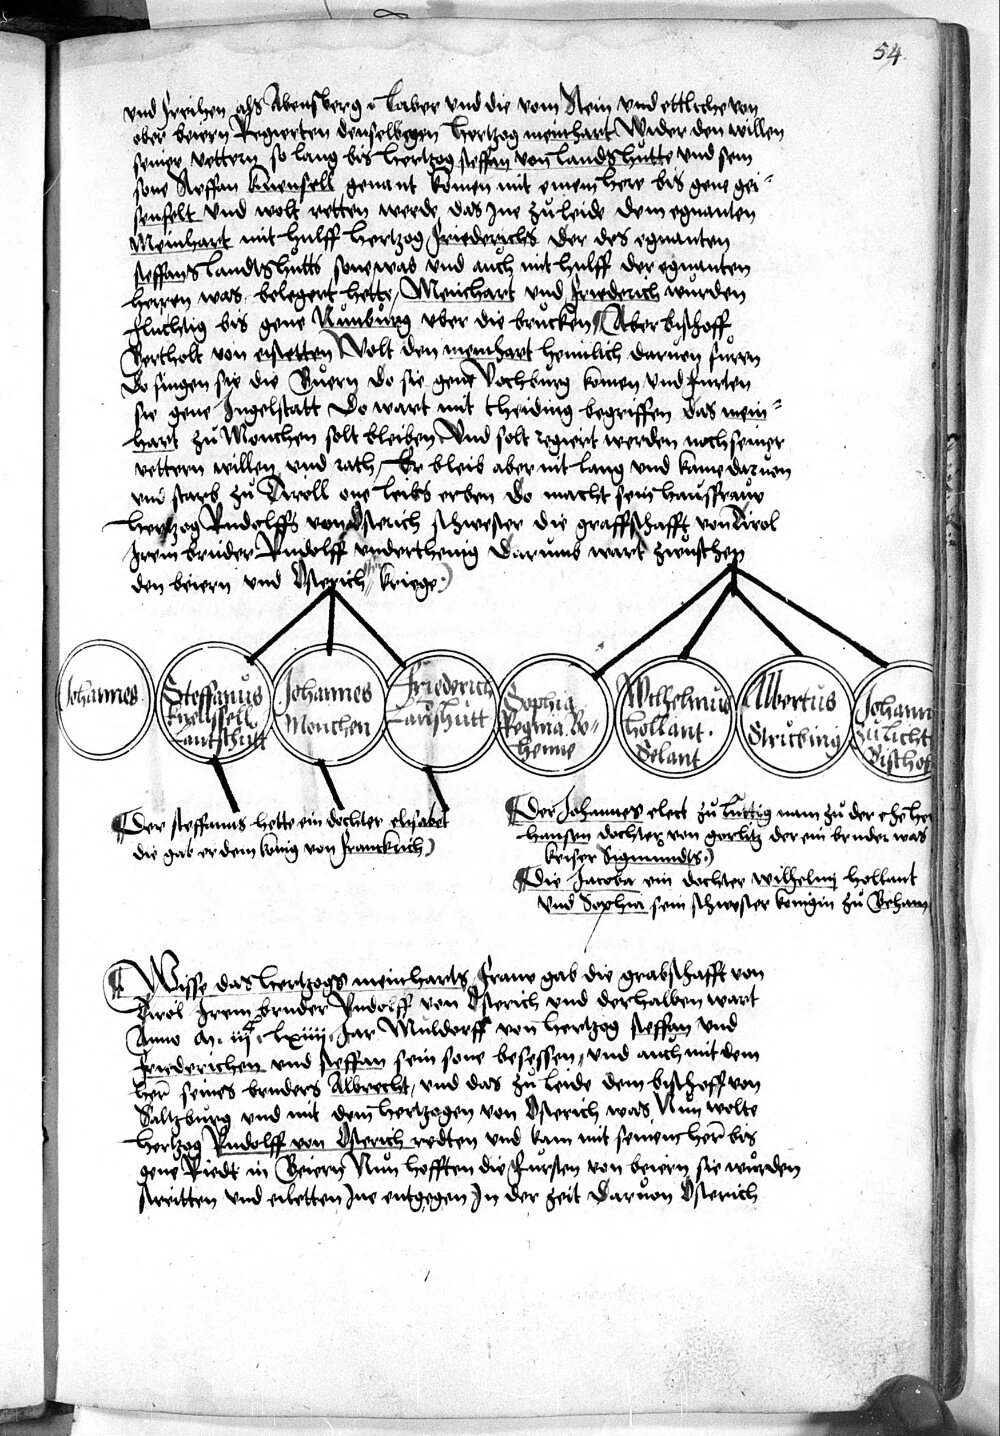 54
und freihen als Abensberg Laber und die vom Stein und ettliche von
ober beiern Regierten denselbegen hertzog meinhart Wider den willen
seiner vettern so lang bis hertzog steffan von landshutte und sein
sone Steffan knensell genant komen mit einem here bis gene gei-
senfelt und wolt retten werde das Jne zu leide dem egnanten
Meinhart mit hulff hertzog friederichs der des egnanten
steffans landtshutts sone was und auch mit hulff der egnanten
herren was belegert hette Meinhart und friederich wurden
fluchtig bis gene Nunburg uber die brucken Aber bischoff
Bertholt von eistetten Wolt den meinhart heimlich darnen furen
Do fingen sie die Buern do sie gene Vochburg komen und furten
sie gene Ingelstatt Do wart mit theiding begriffen das mein-
hart zu Monchen solt bleiben Und solt regiert werden noch seiner
vettern willen und rath Er bleib aber nit lang und kame daruon
und starb zu Tiroll one leibs erben Do macht sein hausfrauw
hertzog Rudolffs von Osterich schwester die graffschafft von Tirol
Jrem bruder Rudolff underthenig Darumb wart zwuschen
den beiern und Osterich kriege
Johannes
Steffanus
knenssell
Lantshutt
Johannes
Monchen
Friederich
Landshutt
Sophia
Regina Bo-
hemie
Wilhelmus
hollant
Selant
Albertus
Strubing
Johann
zu licht
Bischof
Der steffanus hette ein dochter elisabet
die gab er dem konig von franckrich
Der Johannes elect zu luttig nam zu der ehe her
hansen dochter von gorlitz der ein bruder was
keiser Sigmundts
Die Jacoba ein dochter wilhelmj hollant
und Sophia sein schwester konigin zu Beham
Wisse das hertzogs meinharts frauw gab die grabschafft von
Tirol Jrem bruder Rudolff von Osterich und derhalben wart
Anno M iijc lxiiij Jar Muldorff von hertzog steffan und
friederichen und steffan sein sone besessen und auch mit dem
her seines bruders Albrecht und das zu leide dem bischoff von
Saltzburg und mit dem hertzogen von Osterich was Nun wolte
hertzog Rudolff von Osterich redten und kam mit seinem her bis
gene Riedt in Beiern Nun hofften die fursten von beiern sie wurden
streitten und eiletten Jne entgegen In der zeit Daruon Osterich